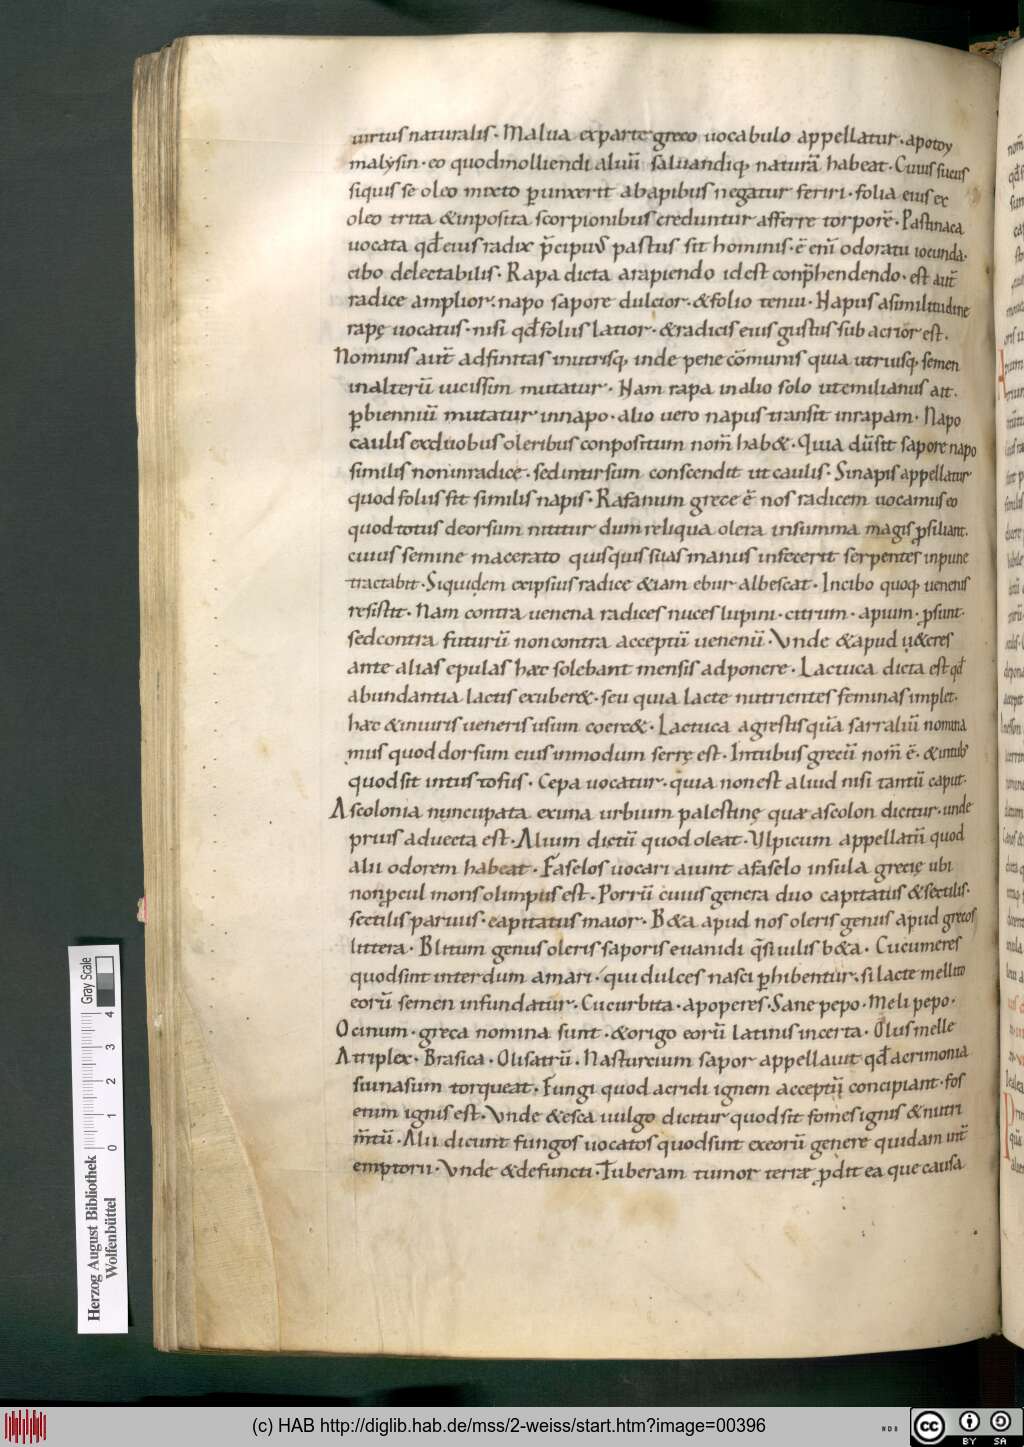 uirtus naturalis. Malua ex parte greco uocabulo appellatur. apotoy
malysin. eo quod molliendi aluū saluandiq; naturā habeat. Cuius sucus
siquis se oleo mixto punxerit abapibus negatur feriri. folia eius ex
oleo trita & inposita scorpionibus creduntur afferre torporē. Pastinaca
uocata qd̄ eius radix p̄cipuus pastus sit hominis. ē eni̅ odoratu iocunda.
cibo delectabilis. Rapa dicta arapiendo id est conp̄hendendo. est aut̄
radice amplior. napo sapore dulcior. & folio tenui. Napus asimilitudine
rapę uocatus. nisi qd̄ foliis latior. & radicis eius gustus sub acrior est.
Nominis aut̄ adfinitas inutrisq; inde pene cōmunis quia utriusq; semen
inalterū uicissim mutatur. Nam rapa in alio solo ut emilianus ait.
p̱ bienniū mutatur innapo. alio uero napus transit inrapam. Napo
caulis exduobus oleribus conpositum nom̄ hab&. Quia dūsit sapore napo
similis non inradice. sed intursum conscendit ut caulis. Sinapis appellatur
quod foliis sit similis napis. Rafanum grece ē nos radicem uocamus eo
quod totus deorsum nititur dum reliqua olera insumma magis p̱siliant.
cuius semine macerato quisquis suas manus infecerit serpentes inpune
tractabit. Siquidem exipsius radice &iam ebur albescat. Incibo quoq; uenenis
resistit. Nam contra uenena radices nuces lupini. citrum. apium. p̱sunt.
sed contra futurū non contra acceptū uenenū. Vnde & apud u&eres
ante alias epulas hae solebant mensis adponere. Lactuca dicta est qd̄
abundantia lactis exuber&. seu quia lacte nutrientes feminas implet.
hae & inuiris ueneris usum coerc&. Lactuca agrestis quā sarraliū nomina
mus quod dorsum eius inmodum serrę est. Intubus grecū nom̄ ē. & intub;
quod sit intus tofus. Cepa uocatur. quia non est aliud nisi tantū caput.
Ascolonia nuncupata exuna urbium palestinę quae ascolon dicitur. unde
prius aduecta est. Alium dictū quod oleat. Vlpicum appellatū quod
alii odorem habeat. Faselos uocari aiunt afaselo insula grecię ubi
non p̱cul mons olimpus est. Porrū cuius genera duo capitatus & sectilis.
sectilis paruus. capitatus maior. B&a apud nos oleris genus apud grecos
littera. Blitum genus oleris saporis euanidi q̄si uilis b&a. Cucumeres
quod sint interdum amari. qui dulces nasci p̱hibentur. si lacte mellito
eorū semen infundatur. Cucurbita. apoperes. Sane pepo. Meli pepo.
Ocinum. greca nomina sunt. & origo eorū latinis incerta. Olus melle
Atriplex. Brasica. Olisatrū. Nasturcium sapor appellauit qd̄ acrimonia
sui nasum torqueat. Fungi quod aridi ignem acceptū concipiant. fos
enim ignis est. Vnde & esca uulgo dicitur quod sit fomes ignis & nutri
m̄tū. Alii dicunt fungos uocatos quod sint exeorū genere quidam int̄
emptorii. Vnde & defuncti. Tuberam tumor terrae p̱dit ea que causa
Herzog August Bibliothek
Wolfenbüttel
0 1 2 3 4
Gray Scale
(c) HAB http://diglib.hab.de/mss/2-weiss/start.htm?image=00396
NDB
cc BY SA